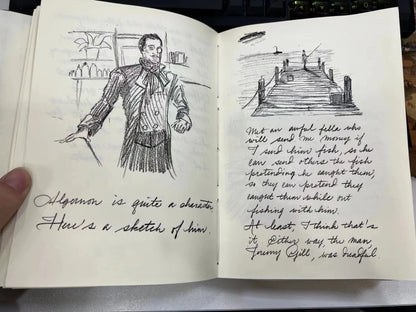 Algernon is quite a character,
Here's a sketch of him.
Met an awful fella who
will send me money if
I send him fish, so he
can send others the fish
pretending he caught them,
so they can pretend they
caught them while out
fishing with him.
At least, I think that's
it. Either way, the man,
Jeremy Gill, was dreadful.